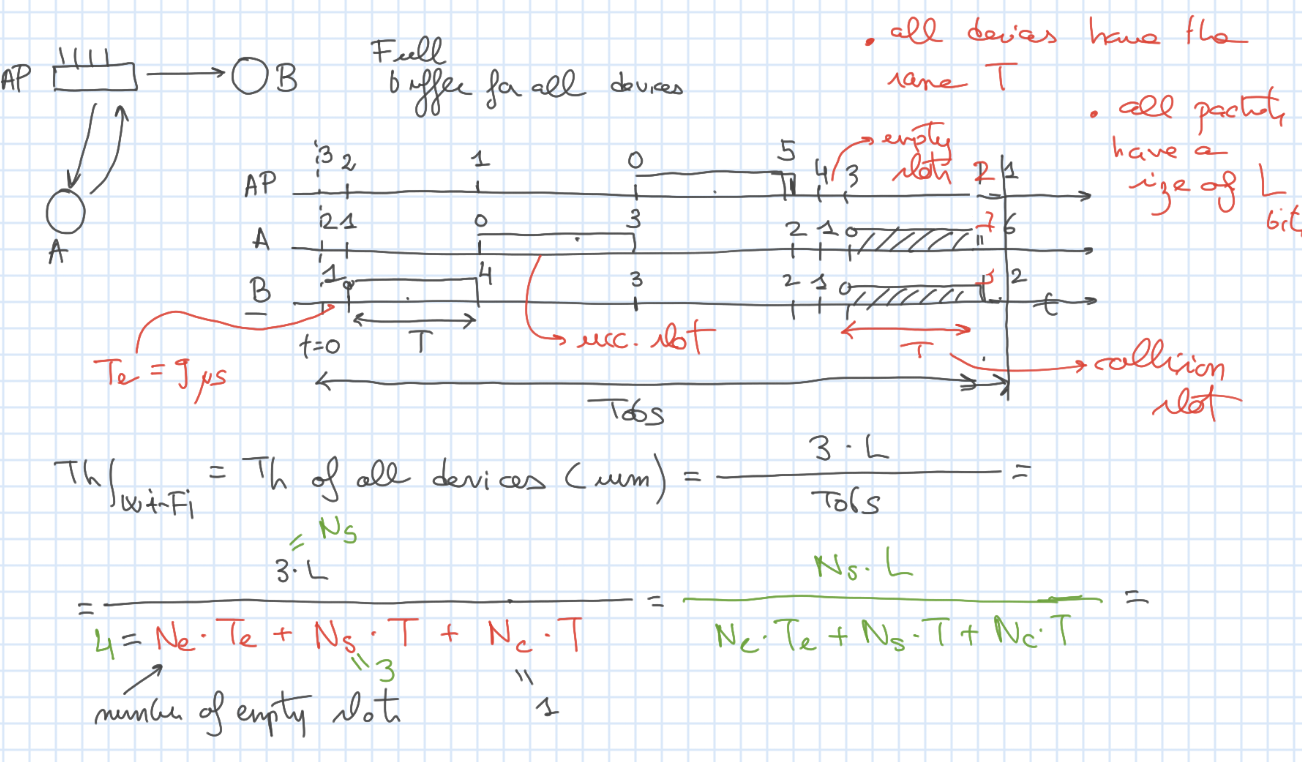 Full
buffer for all devices
AP → B
A
• all devices have the
same T
• all packets
have a
size of L
bit
empty
slots
AP 3 2 1 0 5 4 3 2 1
A 2 1 0 3 2 1 0 7 6
B 1 0 4 3 2 1 0 2
t
t=0 T T
Te = 9 μs
succ. slot
collision
slot
Tobs
Th|Wi-Fi = Th of all devices (sum) = 3 · L / Tobs =
= Ns
= 3 · L / 4 = Ne · Te + Ns · T + Nc · T = Ns · L / Ne · Te + Ns · T + Nc · T =
= 3
= 1
number of empty slots